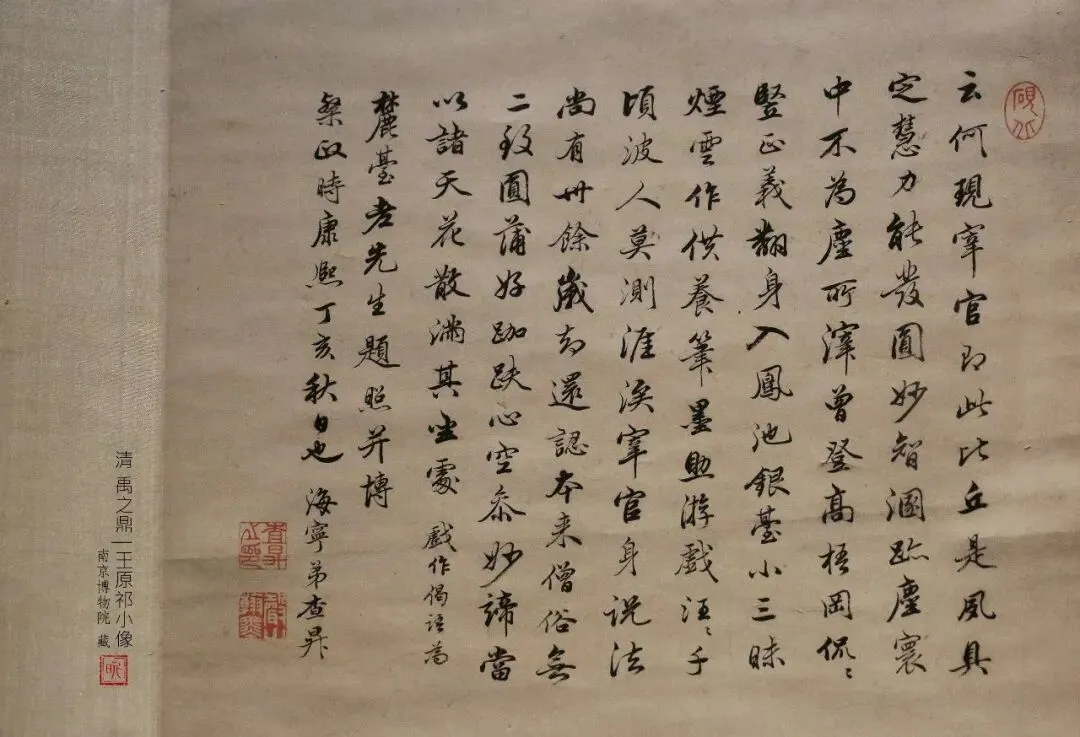 云何現宰官即此比丘是夙具
定慧力能發圓妙智溷跡塵寰
中不為塵所滓曾登高梧岡侃〻
豎正義翻身入鳳池銀臺小三昧
煙雲作供養筆墨點游戲汪〻千
頃波人莫測涯涘宰官身說法
尚有卅餘歲却還認本来僧俗無
二致圓蒲好跏趺心空叅妙諦當
以諸天花散滿其坐處 戲作偈語為
麓臺老先生題照并博
粲政時康熙丁亥秋日也 海寧弟查昇
清 禹之鼎|王原祁小像
南京博物院 藏